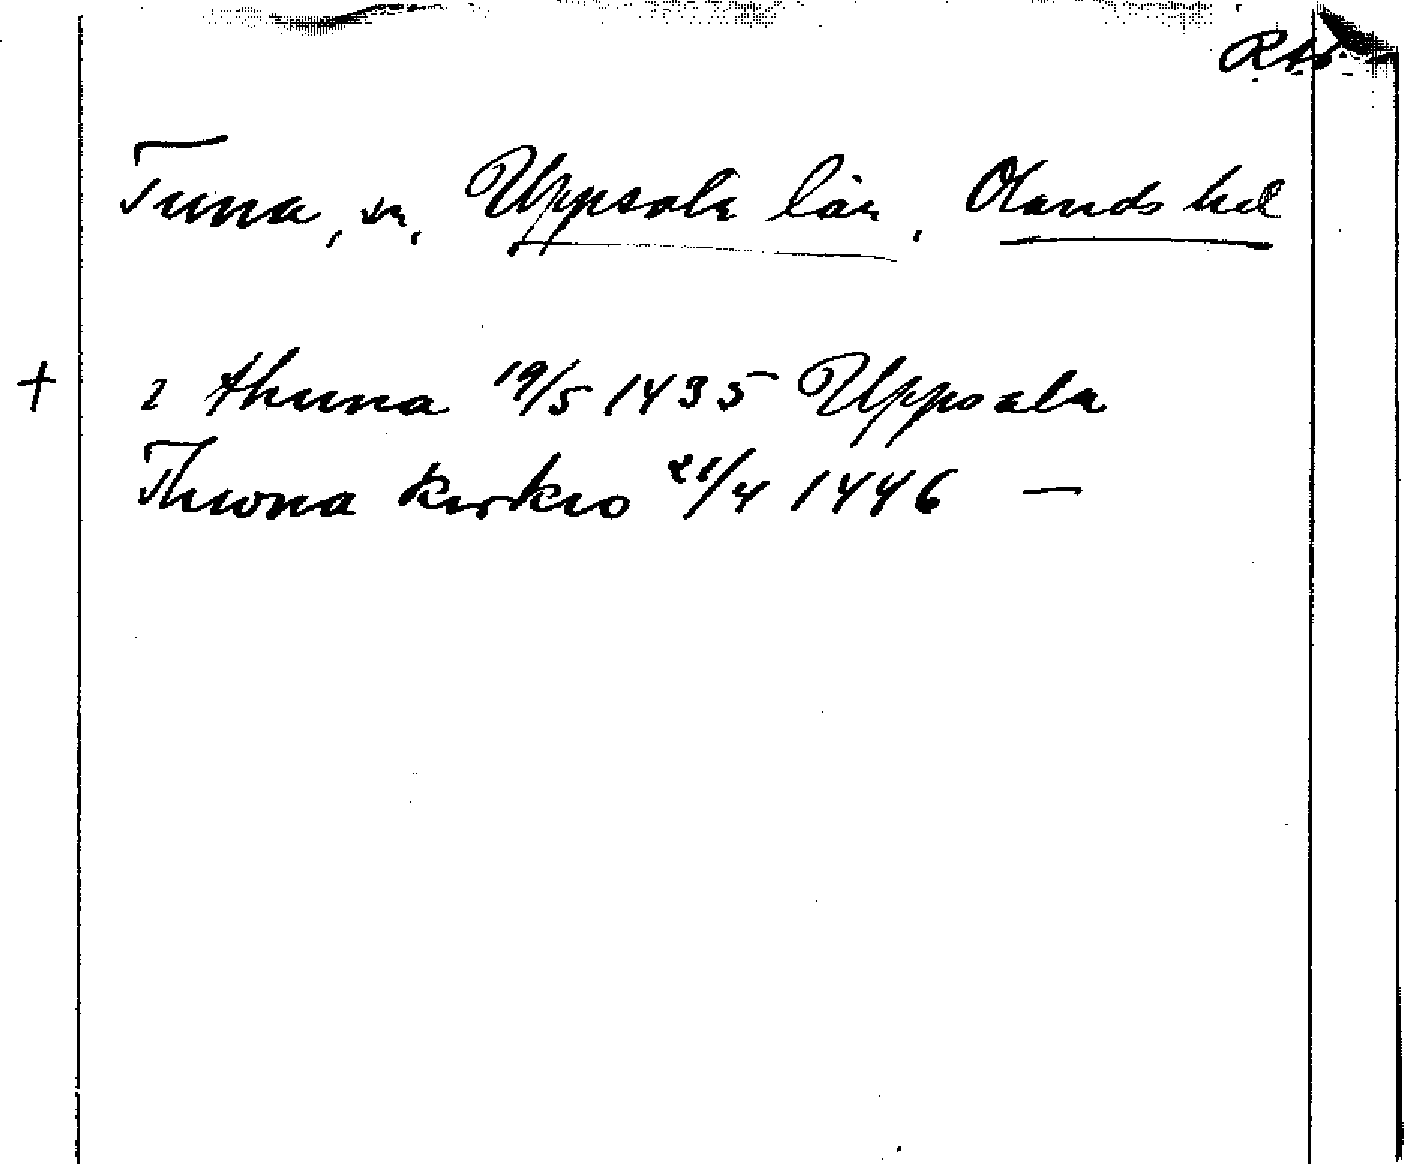 Tuna, sn, Uppsala län, Olands hd
+ i thuna 19/5 1435 Uppsala
Thwna kirkio 21/4 1446 —